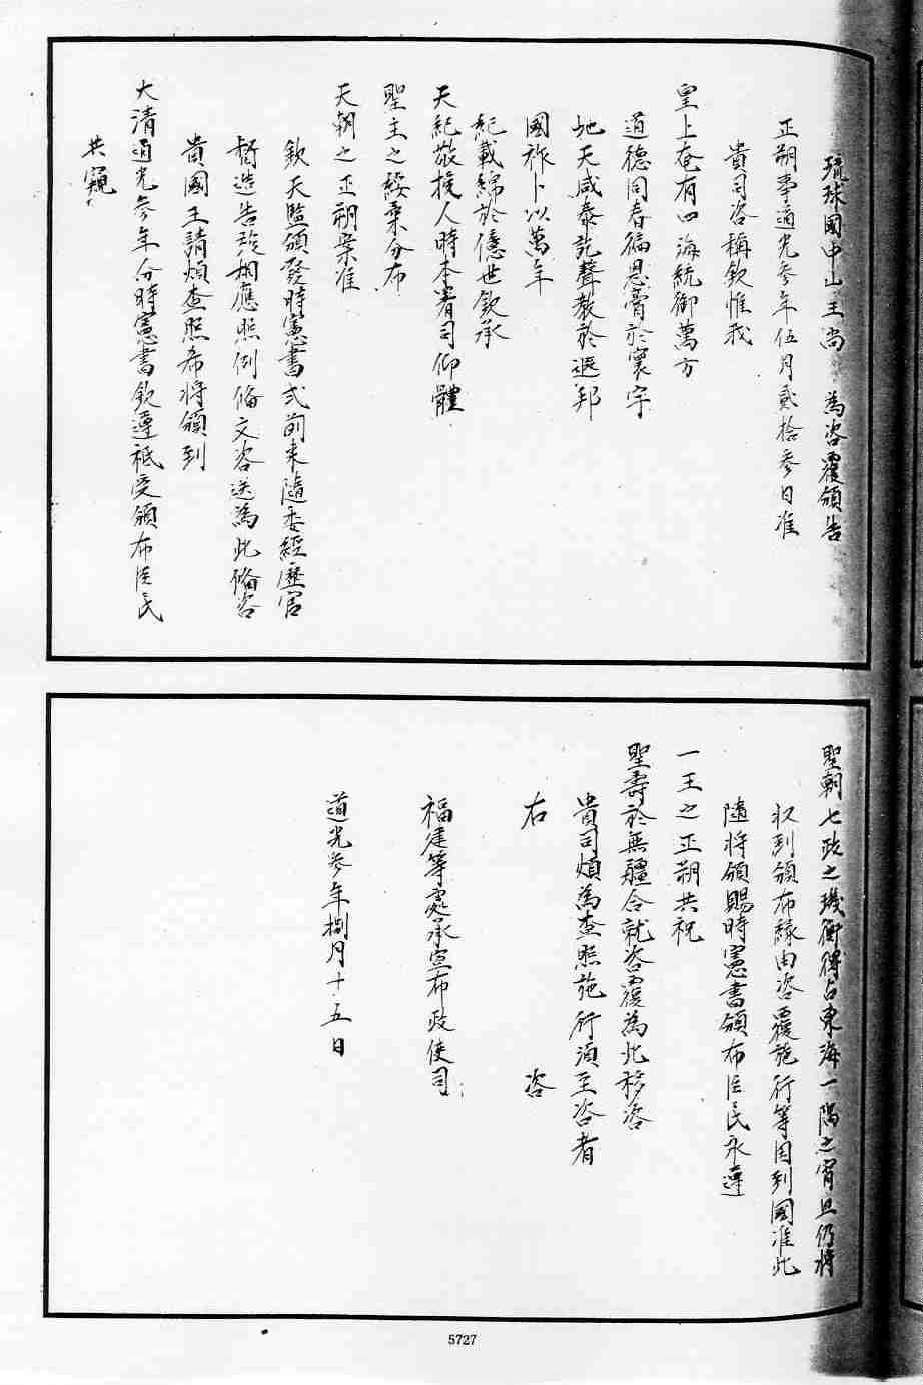 琉球國中山王尚　為咨覆頒告
正朔事道光參年伍月貳拾參日准
貴司咨稱欽惟我
皇上奄有四海統御萬方
道德同春徧恩膏於寰宇
地天咸泰訖聲教於遐邦
國祚卜以萬年
紀載綿於億世欽承
天紀敬授人時本署司仰體
聖主之綏柔分布
天朝之正朔案准
欽天監頒發時憲書式前來隨委經歷官
督造告竣相應照例脩文咨送為此脩咨
貴國王請煩查照希將頒到
大清道光參年分時憲書欽遵祗受頒布臣民
共窺
聖朝七政之璣衡得占東海一隅之宵旦仍將
收到頒布緣由咨覆施行等因到國准此
隨將頒賜時憲書頒布臣民永遵
一王之正朔共祝
聖壽於無疆合就咨覆為此移咨
貴司煩為查照施行須至咨者
右　咨
福建等處承宣布政使司
道光參年捌月十五日
5727